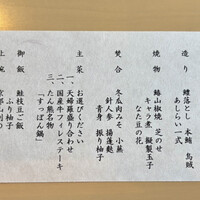 造り
鱧落とし 本鮪 烏賊
あしらい一式
焼物
鰆山椒焼 芝のせ
キャラ煮 擬製玉子
なた豆の花
焚合
冬瓜肉みそ 小蕪
針人参 揚蓬麩
青身 振り柚子
主菜
お選びください
一、天婦羅盛り合わせ
二、国産牛フィレステーキ
三、たん熊名物
「すっぽん鍋」
御飯
鮭枝豆ご飯
ふり柚子